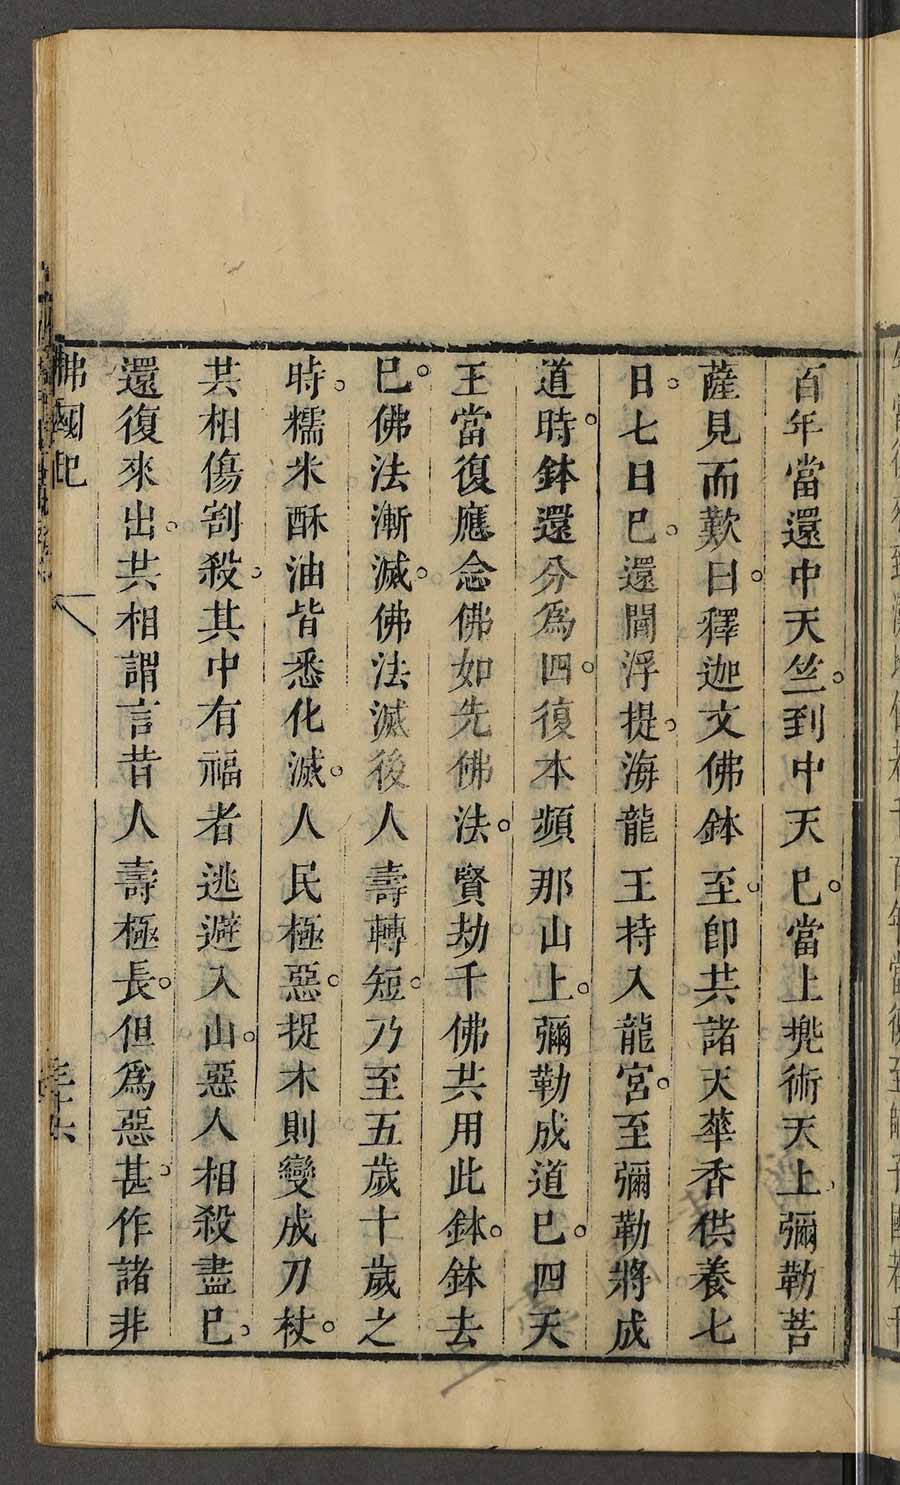 百年當還中天竺。到中天已。當上兠術天上彌勒菩
薩見而歎曰。釋迦文佛鉢至。卽共諸天華香供養七
日。七日已。還閻浮提。海龍王持入龍宮。至彌勒將成
道時。鉢還分爲四。復本頻那山上。彌勒成道已。四天
王當復應念佛如先佛法。賢劫千佛共用此鉢。鉢去
已。佛法漸滅。佛法滅後人壽轉短。乃至五歲十歲之
時。糯米酥油皆悉化滅。人民極惡。捉木則變成刀杖。
共相傷割殺。其中有福者逃避入山。惡人相殺盡已。
還復來出。共相謂言昔人壽極長。但爲惡甚。作諸非
佛國記